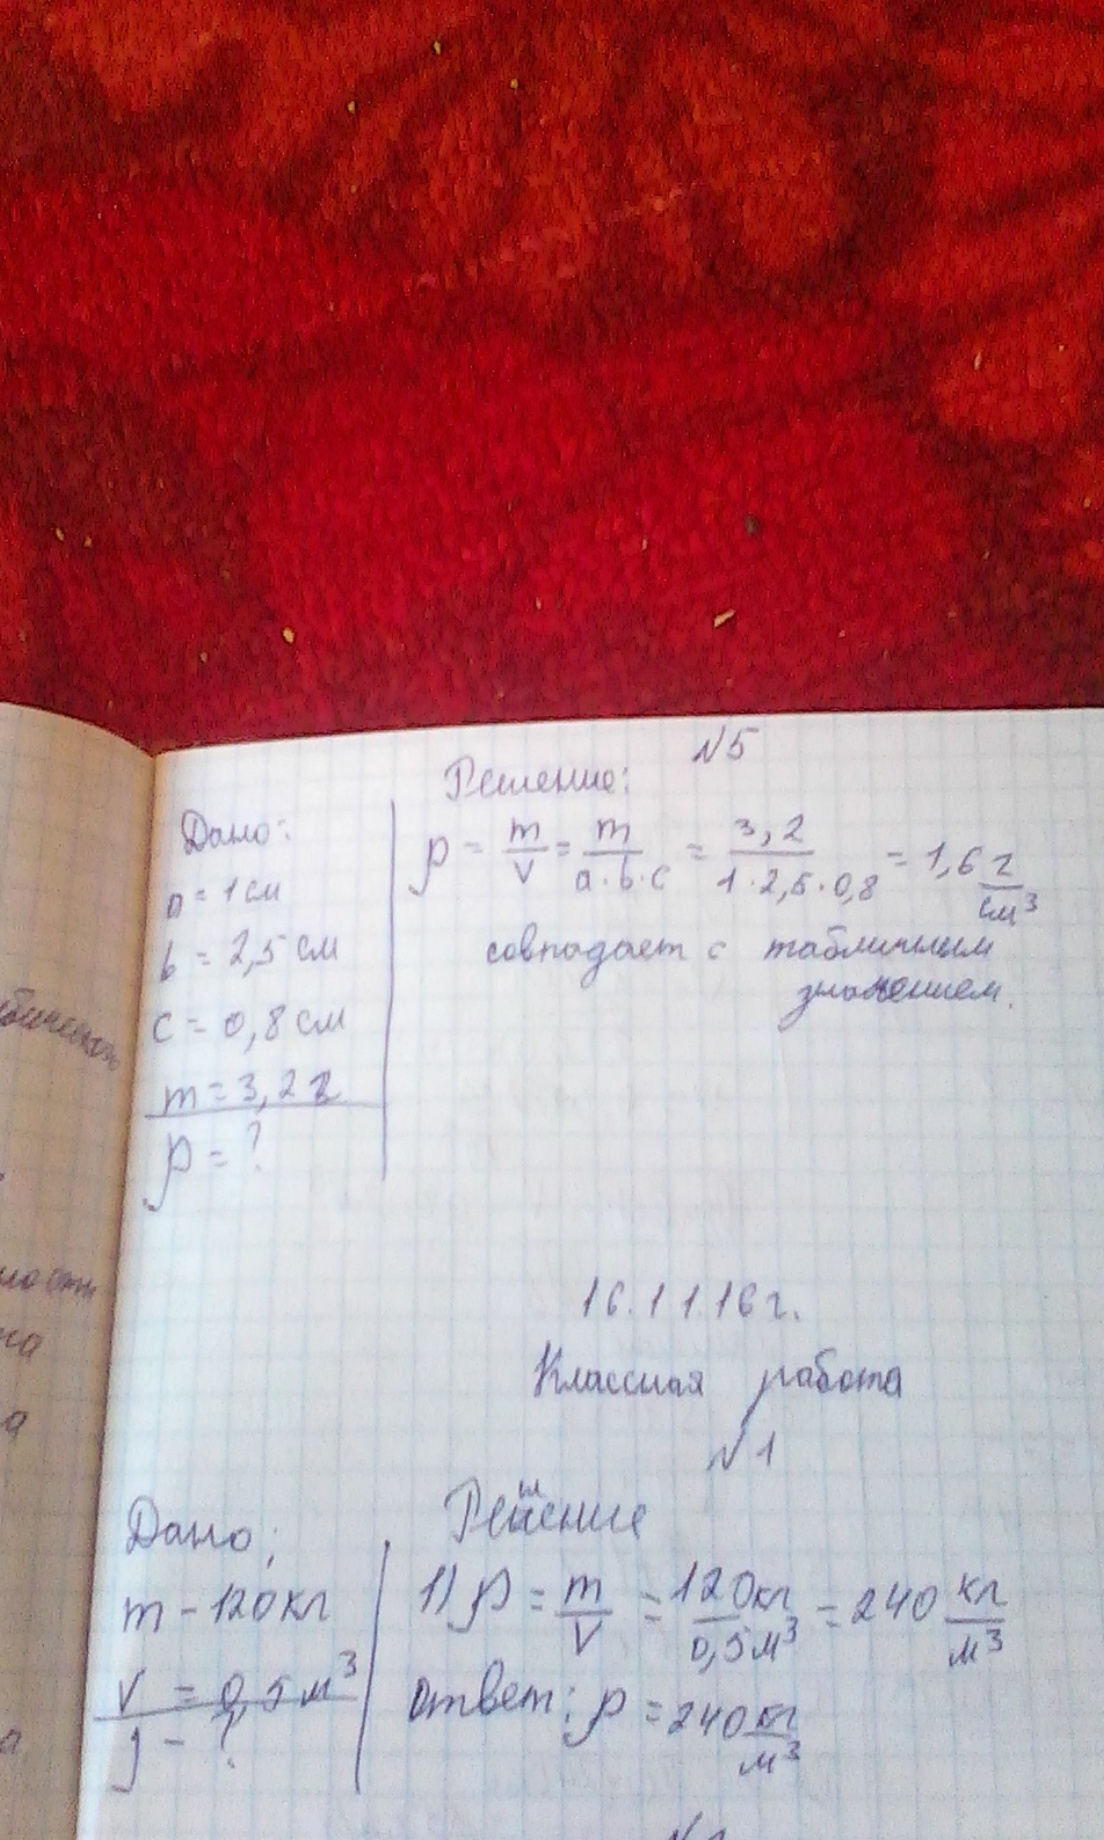 N5
Решение:
Дано:
a = 1 см
b = 2,5 см
c = 0,8 см
m = 3,2 г
ρ = ?
ρ = m/V = m/a·b·c = 3,2/1·2,5·0,8 = 1,6 г/см³
совпадает с табличным
значением.
16.11.16 г.
Классная работа
N1
Дано:
m - 120 кг
V = 0,5 м³
ρ - ?
Решение
1) ρ = m/V = 120кг/0,5м³ = 240 кг/м³
ответ: ρ = 240 кг/м³